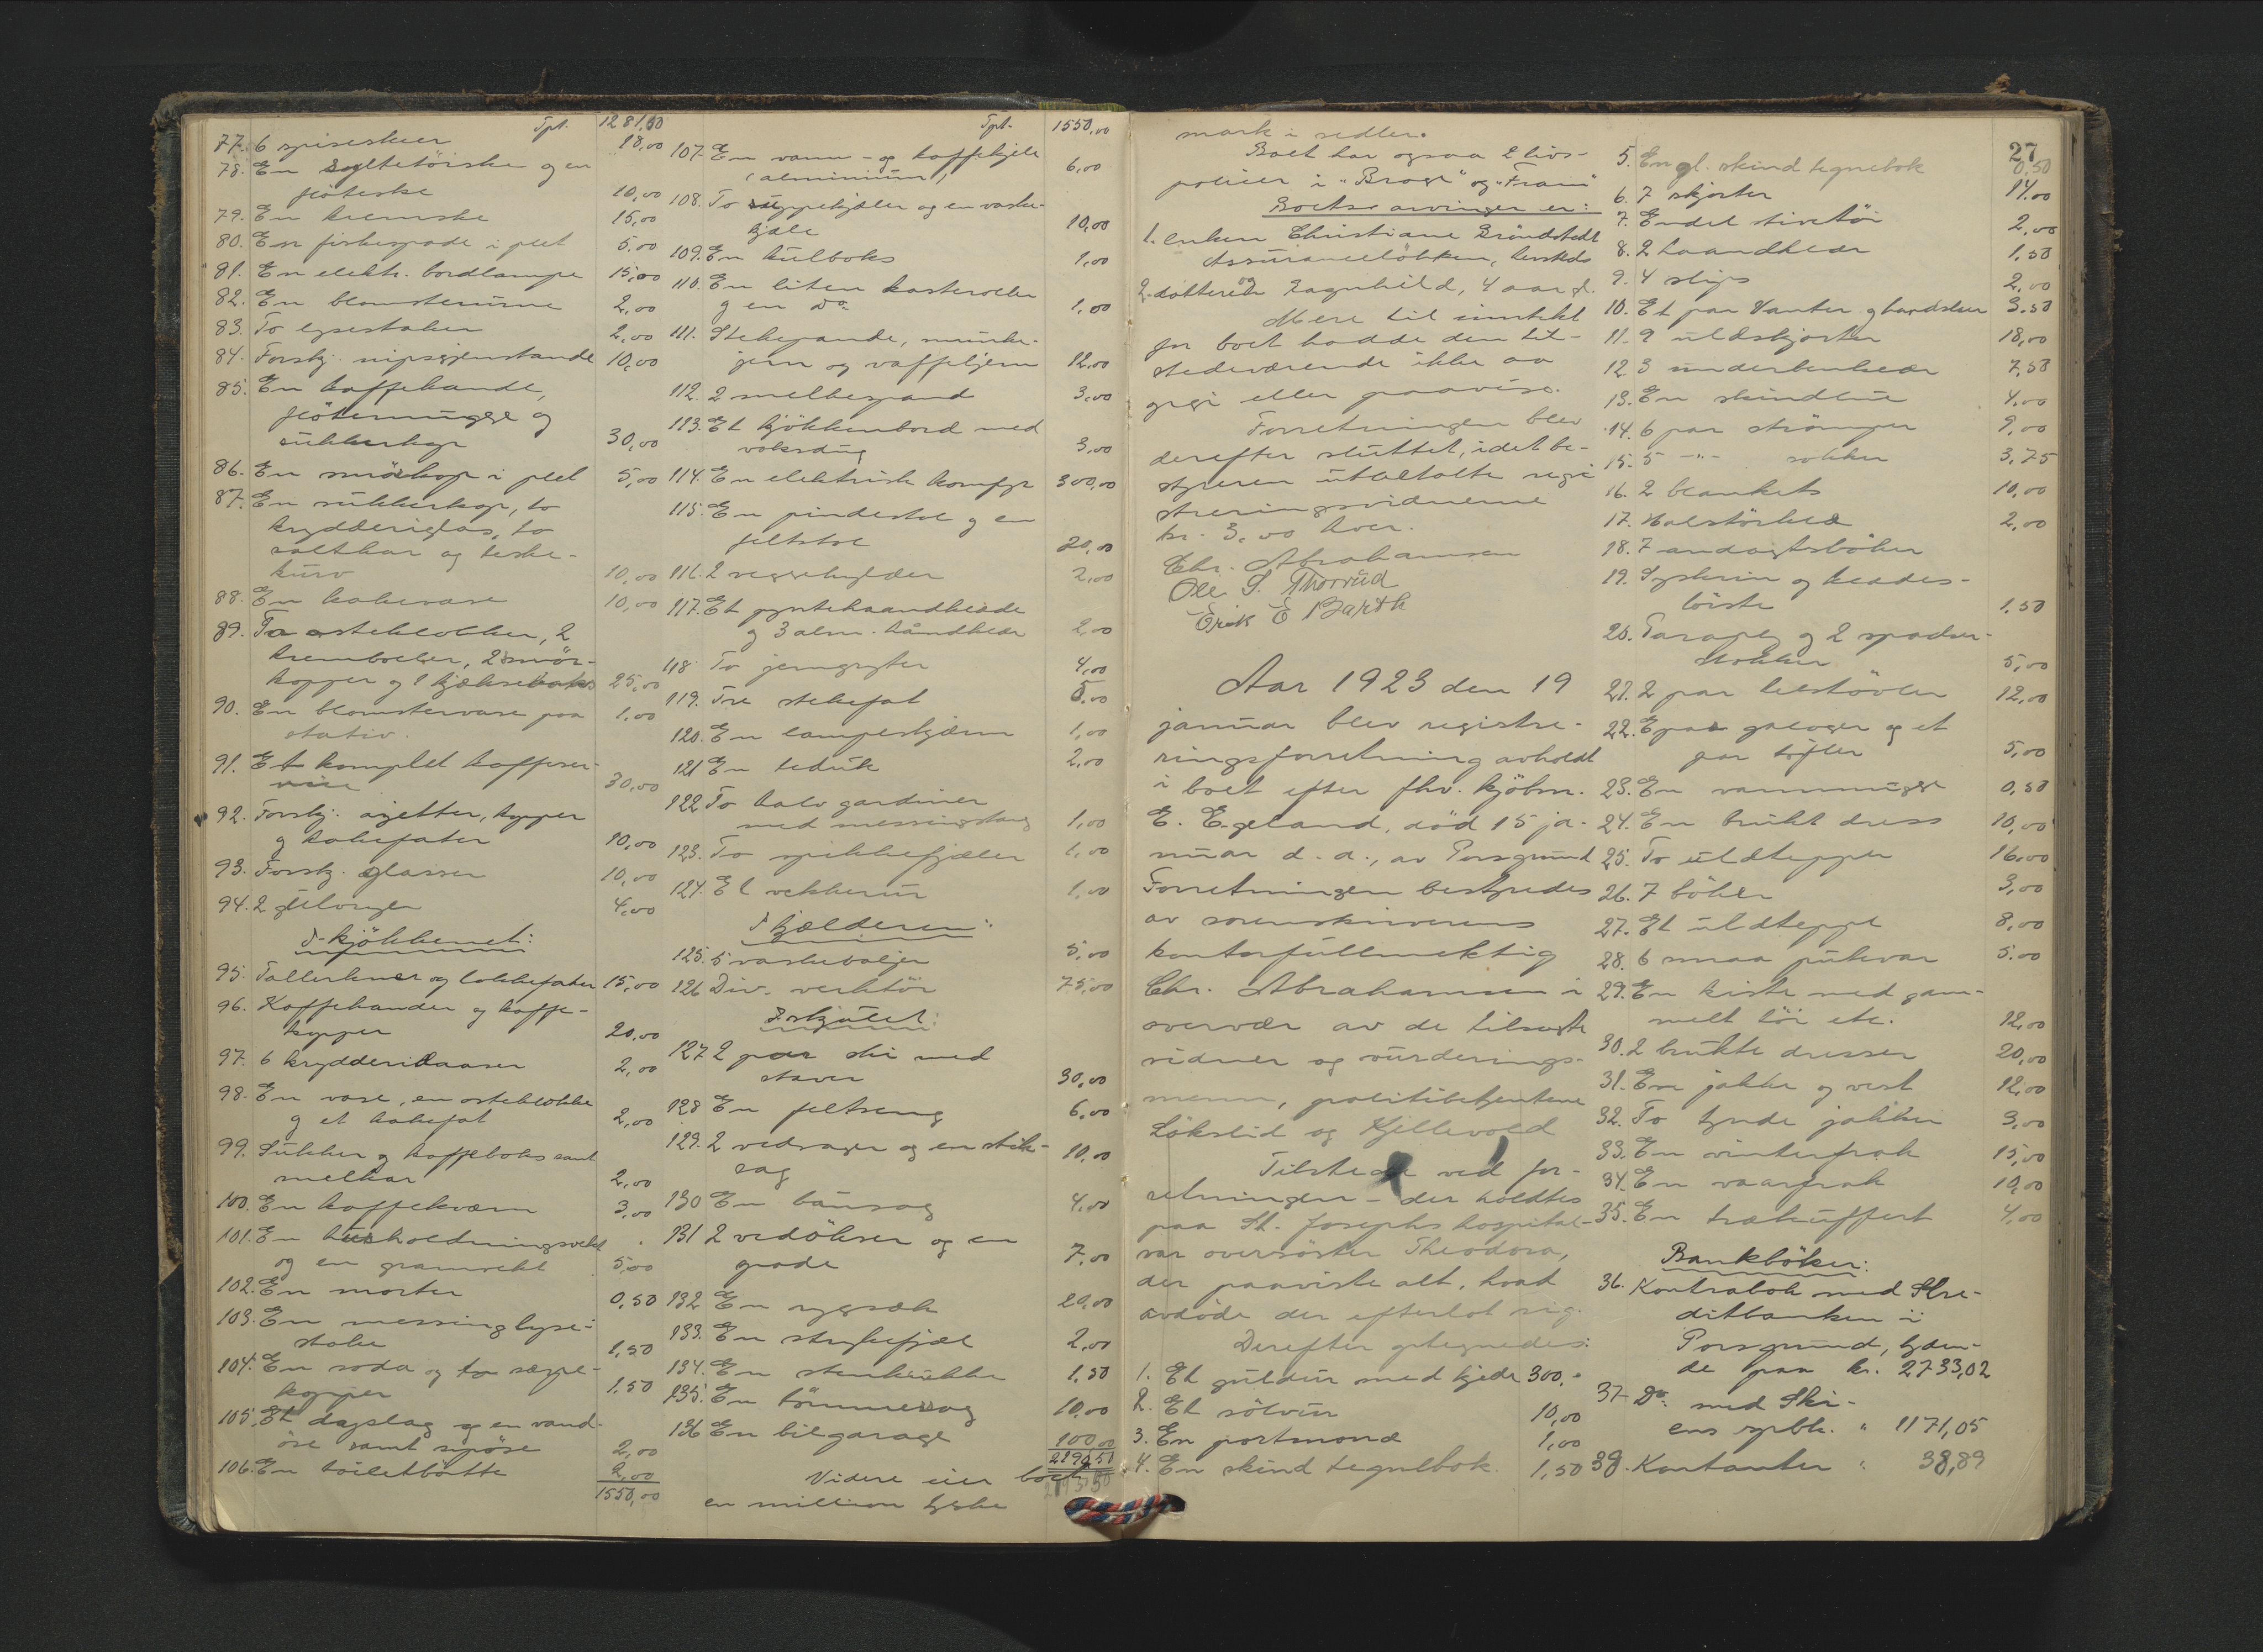 Tpt. 1281,50
77. 6 spiseskeer 18,00
78. En syltetöiske og en
flöteske 10,00
79. En kremske 15,00
80. En fiskespade i plet 5,00
81. En elektr. bordlampe 15,00
82. En blomsterurne 2,00
83. To lysestaker 2,00
84. Forskj. nipsgjenstande 10,00
85. En kaffekande,
flötemugge og
sukkerkop 30,00
86. En smörkop i plet 5,00
87. En sukkerkop, to
krydderiglas, to
saltkar og teske-
kurv 10,00
88. En kakevase 10,00
89. To osteklokker, 2
kremboller, 2 smör-
kopper og 1 kjækseboks 25,00
90. En blomstervase paa 1,00
stativ.
91. Et komplet kaffeser-
vise 30,00
92. Forskj. asjetter, kopper
og kakefater 10,00
93. Forskj. glasser 10,00
94. 2 gulvryer 4,00
I kjökkenet:
95. Tallerkner og lokkefater 15,00
96. Kaffekander og kaffe-
kopper 20,00
97. 6 krydderidaaser 2,00
98. En vase, en osteklokke
og et kakefat 2,00
99. Sukker og kaffeboks samt
melkar 2,00
100. En kaffekværn 3,00
101. En husholdningsvekt
og en gramvekt 5,00
102. En morter 0,50
103. En messinglyse-
stake 1,50
104. En soda og to sæpe-
kopper 1,50
105. Et dørslag og en vand-
öse samt supöse 2,00
106. En toiletbötte 2,00
1550,00
Tpt. 1550,00
107. En vann- og kaffekjele
(aluminium) 6,00
108. To suppekjeler og en vaske-
kjele 10,00
109. En kulboks 1,00
110. En liten kasterolle
og en do 1,00
111. Stekepande, munke-
jern og vaffeljern 12,00
112. 2 melkespand 3,00
113. Et kjökkenbord med
voksdug 3,00
114. En elektrisk komfyr 300,00
115. En pindestol og en
feltstol 20,00
116. 2 veggehylder 2,00
117. Et pyntehaandklæde
og 3 alm. håndklær 2,00
118. To jerngryter 4,00
119. Tre stekefat 5,00
120. En lampeskjærm 1,00
121. En teduk 2,00
122. To halv gardiner
med messingstang 1,00
123. To spikkefjæler 1,00
124. Et vekkerur 1,00
I kjælderen:
125. 5 vaskebaljer 5,00
126. Div. verktöi 75,00
I skjulet:
127. 2 par ski med
staver 30,00
128. En feltseng 6,00
129. 2 vedsager og en stik-
sag 10,00
130. En bausag 4,00
131. 2 vedökser og en
spade 7,00
132. En rygsæk 20,00
133. En strykefjæl 2,00
134. En stenkrukke 1,50
135. En tömmersag 10,00
136. En bilgarage 100,00
2190,50
Videre eier boet
en million tyske
mark i sedler.
Boet har ogsaa 2 livs-
policer i "Brage" og "Fram"
Boets arvinger er:
1. enken Christiane Gründstedt
Assuranceløkken, hersteds
2. datteren Ragnhild, 4 aar gl.
Mere til inntekt
for boet hadde den til-
stedeværende ikke aa
opgi eller paavise.
Forretningen blev
derefter sluttet, idet be-
styreren utbetalte regi-
streringsvidnerne
kr. 3,00 hver.
Chr. Abrahamsen
Ole S. Thorrud
Erik E Barth
Aar 1923 den 19
januar blev registre-
ringsforretning avholdt
i boet efter fhv. kjöbm.
E. Egeland, död 15 ja-
nuar d. a., av Porsgrund
Forretningen bestyredes
av sorenskriverens
kontorfullmektig
Chr. Abrahamsen i
overvær av de tilsagte
vidner og vurderings-
menn, politibetjentene
Lökslid og Kjellevold
Tilstede ved for-
retningen - der holdtes
paa St. Josephs hospital -
var oversöster Theodora,
der paaviste alt, hvad
avdöde der efterlot sig.
Derefter optegnedes:
1. Et guldur med kjede 300,-
2. Et sölvur 10,00
3. En portmoné 1,00
4. En skind tegnebok 1,50
27
5. En gl. skind tegnebok 0,50
6. 7 skjorter 14,00
7. Endel livtöi 2,00
8. 2 haandklær 1,50
9. 4 slips 2,00
10. Et par Vanter og handsker 3,50
11. 9 uldskjorter 18,00
12. 3 underbenklær 7,50
13. En skindlue 4,00
14. 6 par strömper 9,00
15. 5 -"- sokker 3,75
16. 2 blankets 10,00
17. Halstörklæ 2,00
18. 7 andagtsböker
19. Syskrin og klædes-
börste 1,50
20. Paraply og 2 spadser-
stokker 5,00
21. 2 par lerstövler 12,00
22. E par galoger og et
par töfler 5,00
23. En vannmugge 0,50
24. En brukt dress 10,00
25. To uldtepper 16,00
26. 7 böker 3,00
27. Et uldteppe 8,00
28. 6 smaa putevar 5,00
29. En kiste med gam-
melt töi etc. 12,00
30. 2 brukte dresser 20,00
31. En jakke og vest 12,00
32. To tynde jakker 3,00
33. En vinterfrak 15,00
34. En vaarfrak 10,00
35. En trækuffert 4,00
Bankböker:
36. Kontrabok med Kre-
ditbanken i
Porsgrund, lyden-
de paa kr. 2733,02
37. Do. med Ski-
ens spbk. " 1171,05
38. Kontanter " 38,89